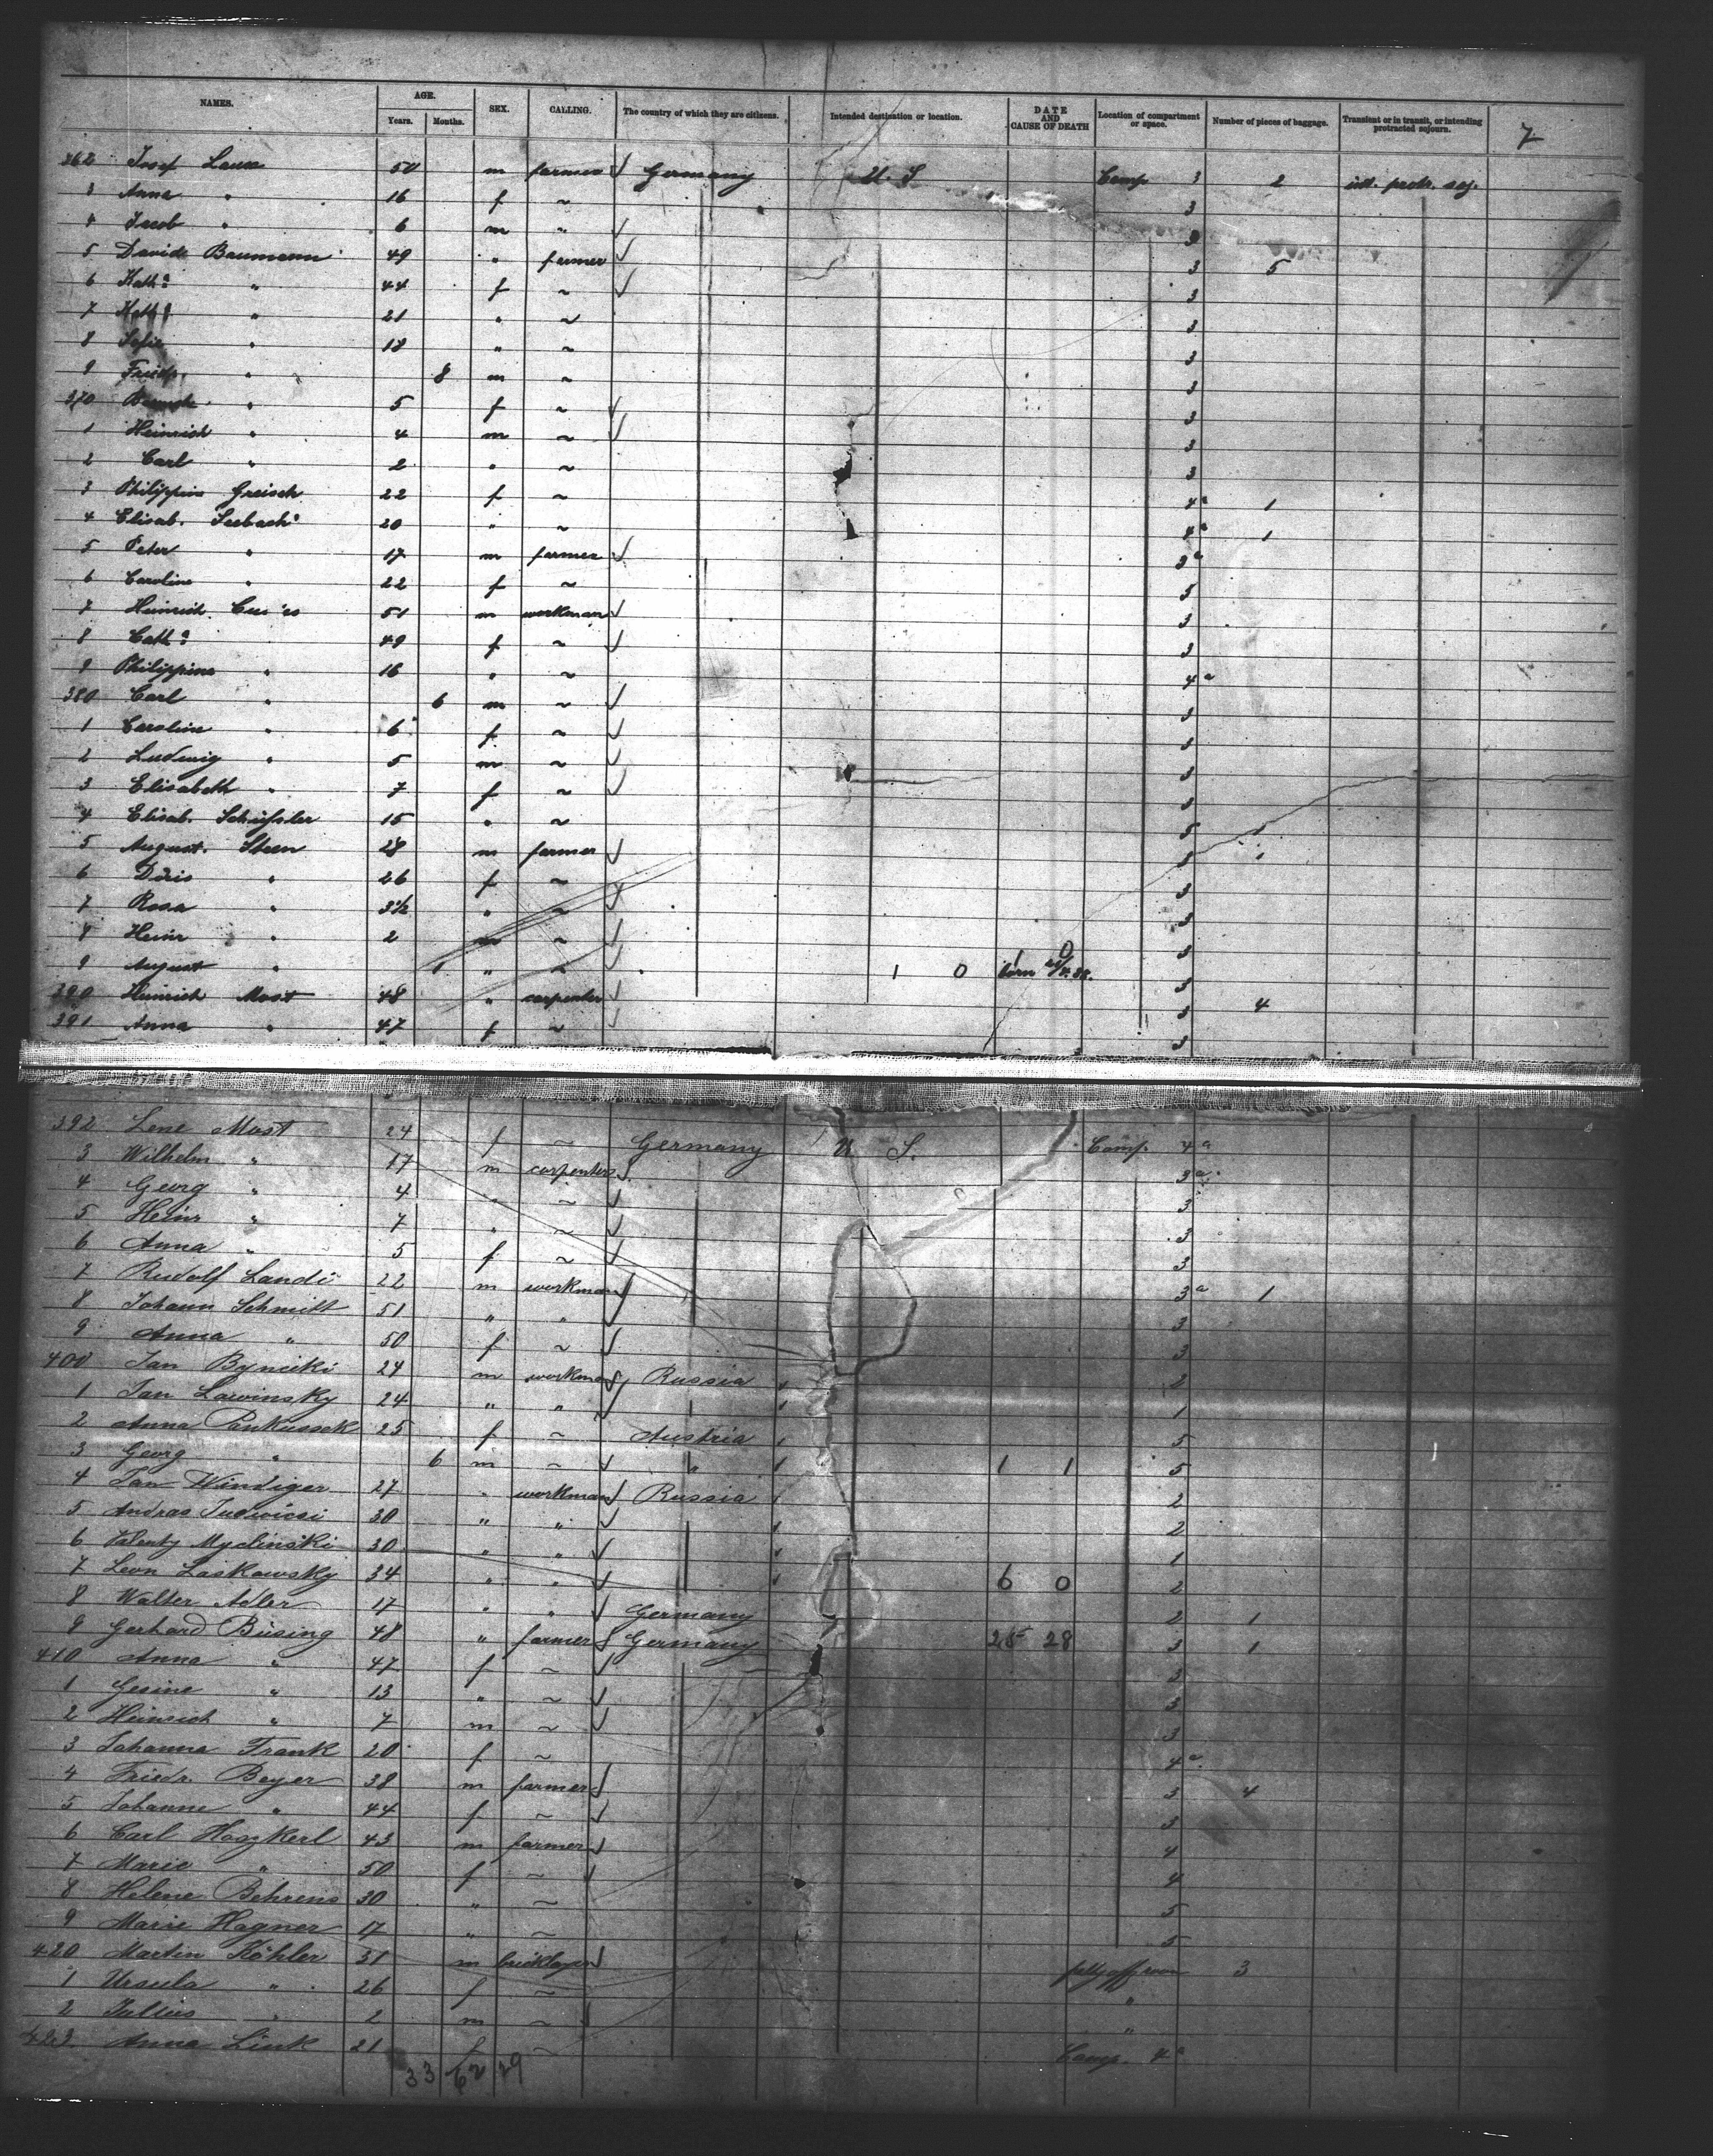 NAMES. AGE. Years. Months. SEX. CALLING. The country of which they are citizens. Intended destination or location. DATE AND CAUSE OF DEATH Location of compartment or space. Number of pieces of baggage. Transient or in transit, or intending protracted sojourn. 7
362 Josef 50 m farmer Germany U. S Comp 3 2 int. protr. soj.
3 Anna " 16 f ~ 3
4 Jacob " 6 m " 3
5 David Baumann 49 " farmer 3 5
6 Kath: " 44 f ~ 3
7 Kath: " 21 " ~ 3
8 Sofie " 18 " ~ 3
9 Friedr. " 8 m ~ 3
370 " 5 f ~ 3
1 Heinrich " 4 m ~ 3
2 Carl " 2 " ~ 3
3 Philippine Greisch 22 f ~ 4a 1
4 Elisab. Seebach 20 " ~ 4a 1
5 Peter " 17 m farmer 3a
6 Caroline " 22 f ~ 5
7 Heinrich 51 m workman 3
8 Cath: 49 f ~ 3
9 Philippine " 16 " ~ 4a
380 Carl " 6 m ~ 3
1 Caroline " 6 f ~ 3
2 Ludwig " 5 m ~ 3
3 Elisabeth " 7 f ~ 3
4 Elisab. Schüssler 15 " ~ 5 1
5 August. Steen 28 m farmer 3 1
6 Doris " 26 f ~ 3
7 Rosa " 3½ " ~ 3
8 Heinr " 2 m ~ 3
9 August " 1 " ~ 1 0 born 3
390 Heinrich Mast 48 " carpenter 3 4
391 Anna " 47 f ~ 3
392 Lene Mast 24 f ~ Germany U. S. Comp. 4a
3 Wilhelm " 17 m carpenter 3a
4 Georg " 4 " ~ 3
5 Heinr " 7 " ~ 3
6 Anna " 5 f ~ 3
7 Rudolf Landi 22 m workman 3a 1
8 Johann Schmitt 51 " " 3
9 Anna " 50 f ~ 3
400 Jan Bynicki 24 m workman Russia 2
1 Jan Lawinsky 24 " " 1
2 Anna Pankussek 25 f ~ Austria 5
3 Georg " 6 m ~ " 1 1 5
4 Jan Windiger 27 " workman Russia 2
5 Andras 30 " " 2
6 Valenty Myclinski 30 " " 1
7 Leon Laskowsky 34 " " 6 0 2
8 Walter Adler 17 " " Germany 2 1
9 Gerhard Büsing 48 " farmer Germany 25 28 3 1
410 Anna " 47 f ~ 3
1 Gesine " 13 " ~ 3
2 Heinrich " 7 m ~ 3
3 Johanna Frank 20 f ~ 4a
4 Friedr. Beyer 38 m farmer 3 4
5 Johanne " 44 f ~ 3
6 Carl Hoszkerl 43 m farmer 4
7 Marie " 50 f ~ 4
8 Helene Behrens 30 " ~ 5
9 Marie Hagner 17 " ~ 5
420 Martin Köhler 31 m bricklayer 3
1 Ursula " 26 f ~ "
2 Julius " 2 m ~ "
423 Anna Link 21 f ~ Comp. 4a
33 62 29